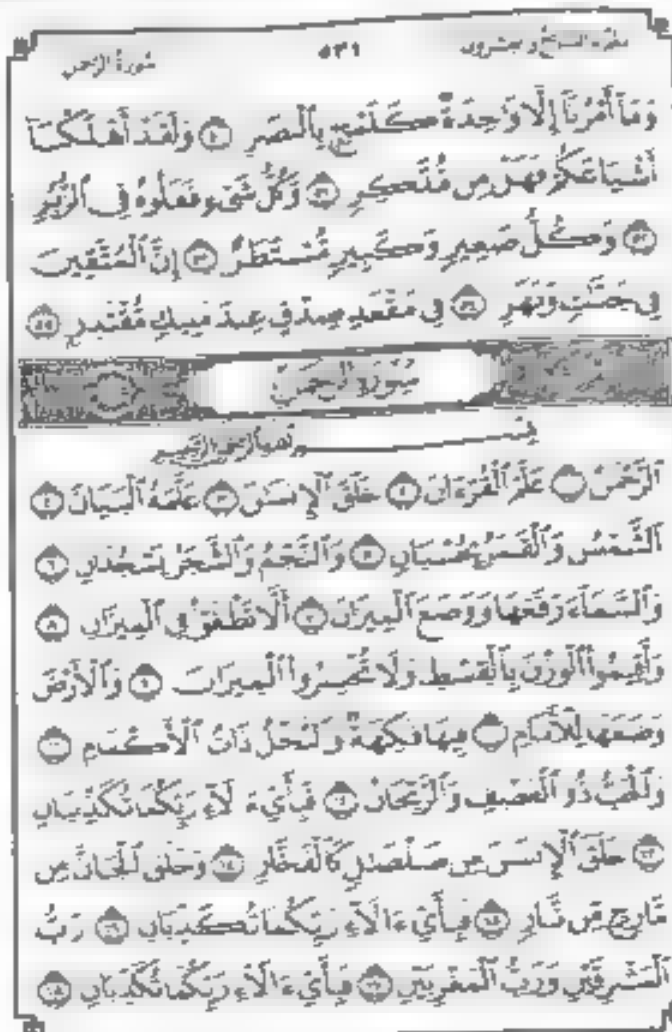 الجزء السابع والعشرون ٥٣١ سورة الرحمن
وَمَا أَمْرُنَا إِلَّا وَٰحِدَةٌ كَلَمْحٍۭ بِٱلْبَصَرِ ٥٠ وَلَقَدْ أَهْلَكْنَآ
أَشْيَاعَكُمْ فَهَلْ مِن مُّدَّكِرٍ ٥١ وَكُلُّ شَىْءٍ فَعَلُوهُ فِى ٱلزُّبُرِ
٥٢ وَكُلُّ صَغِيرٍ وَكَبِيرٍ مُّسْتَطَرٌ ٥٣ إِنَّ ٱلْمُتَّقِينَ
فِى جَنَّٰتٍ وَنَهَرٍ ٥٤ فِى مَقْعَدِ صِدْقٍ عِندَ مَلِيكٍ مُّقْتَدِرٍۭ ٥٥
سُورَةُ الرَّحْمَٰن
بِسْمِ ٱللَّهِ ٱلرَّحْمَٰنِ ٱلرَّحِيمِ
ٱلرَّحْمَٰنُ ١ عَلَّمَ ٱلْقُرْءَانَ ٢ خَلَقَ ٱلْإِنسَٰنَ ٣ عَلَّمَهُ ٱلْبَيَانَ ٤
ٱلشَّمْسُ وَٱلْقَمَرُ بِحُسْبَانٍ ٥ وَٱلنَّجْمُ وَٱلشَّجَرُ يَسْجُدَانِ ٦
وَٱلسَّمَآءَ رَفَعَهَا وَوَضَعَ ٱلْمِيزَانَ ٧ أَلَّا تَطْغَوْا۟ فِى ٱلْمِيزَانِ ٨
وَأَقِيمُوا۟ ٱلْوَزْنَ بِٱلْقِسْطِ وَلَا تُخْسِرُوا۟ ٱلْمِيزَانَ ٩ وَٱلْأَرْضَ
وَضَعَهَا لِلْأَنَامِ ١٠ فِيهَا فَٰكِهَةٌ وَٱلنَّخْلُ ذَاتُ ٱلْأَكْمَامِ ١١
وَٱلْحَبُّ ذُو ٱلْعَصْفِ وَٱلرَّيْحَانُ ١٢ فَبِأَىِّ ءَالَآءِ رَبِّكُمَا تُكَذِّبَانِ
١٣ خَلَقَ ٱلْإِنسَٰنَ مِن صَلْصَٰلٍ كَٱلْفَخَّارِ ١٤ وَخَلَقَ ٱلْجَآنَّ مِن
مَّارِجٍ مِّن نَّارٍ ١٥ فَبِأَىِّ ءَالَآءِ رَبِّكُمَا تُكَذِّبَانِ ١٦ رَبُّ
ٱلْمَشْرِقَيْنِ وَرَبُّ ٱلْمَغْرِبَيْنِ ١٧ فَبِأَىِّ ءَالَآءِ رَبِّكُمَا تُكَذِّبَانِ ١٨